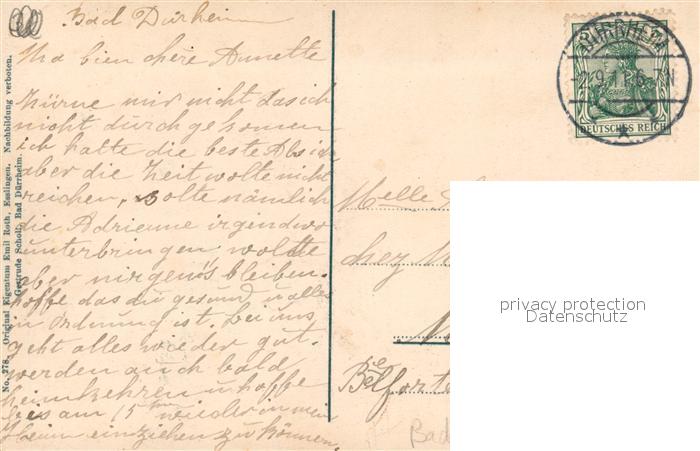 Bad Dürheim
Ma bien chere Annette
Zürne mir nicht das ich
nicht durch gekomen
ich hatte die beste Absich
aber die Zeit wolte nicht
reichen, wolte nämlich
die Adrienne irgendwo
unterbringen woldte
aber nirgens bleiben.
hoffe das du gesund u alles
in Ordnung ist. bei uns
geht alles wieder gut.
werden auch bald
heimkehren u hoffe
bis am 15ten wieder in mein
Heim einziehen zu können.
No. 278. Original Eigentum Emil Roth, Esslingen. Nachbildung verboten.
Gertrude Scholt, Bad Dürrheim.
DÜRRHEIM
DEUTSCHES REICH
Melle
chez
Belfort
Bad
privacy protection
Datenschutz